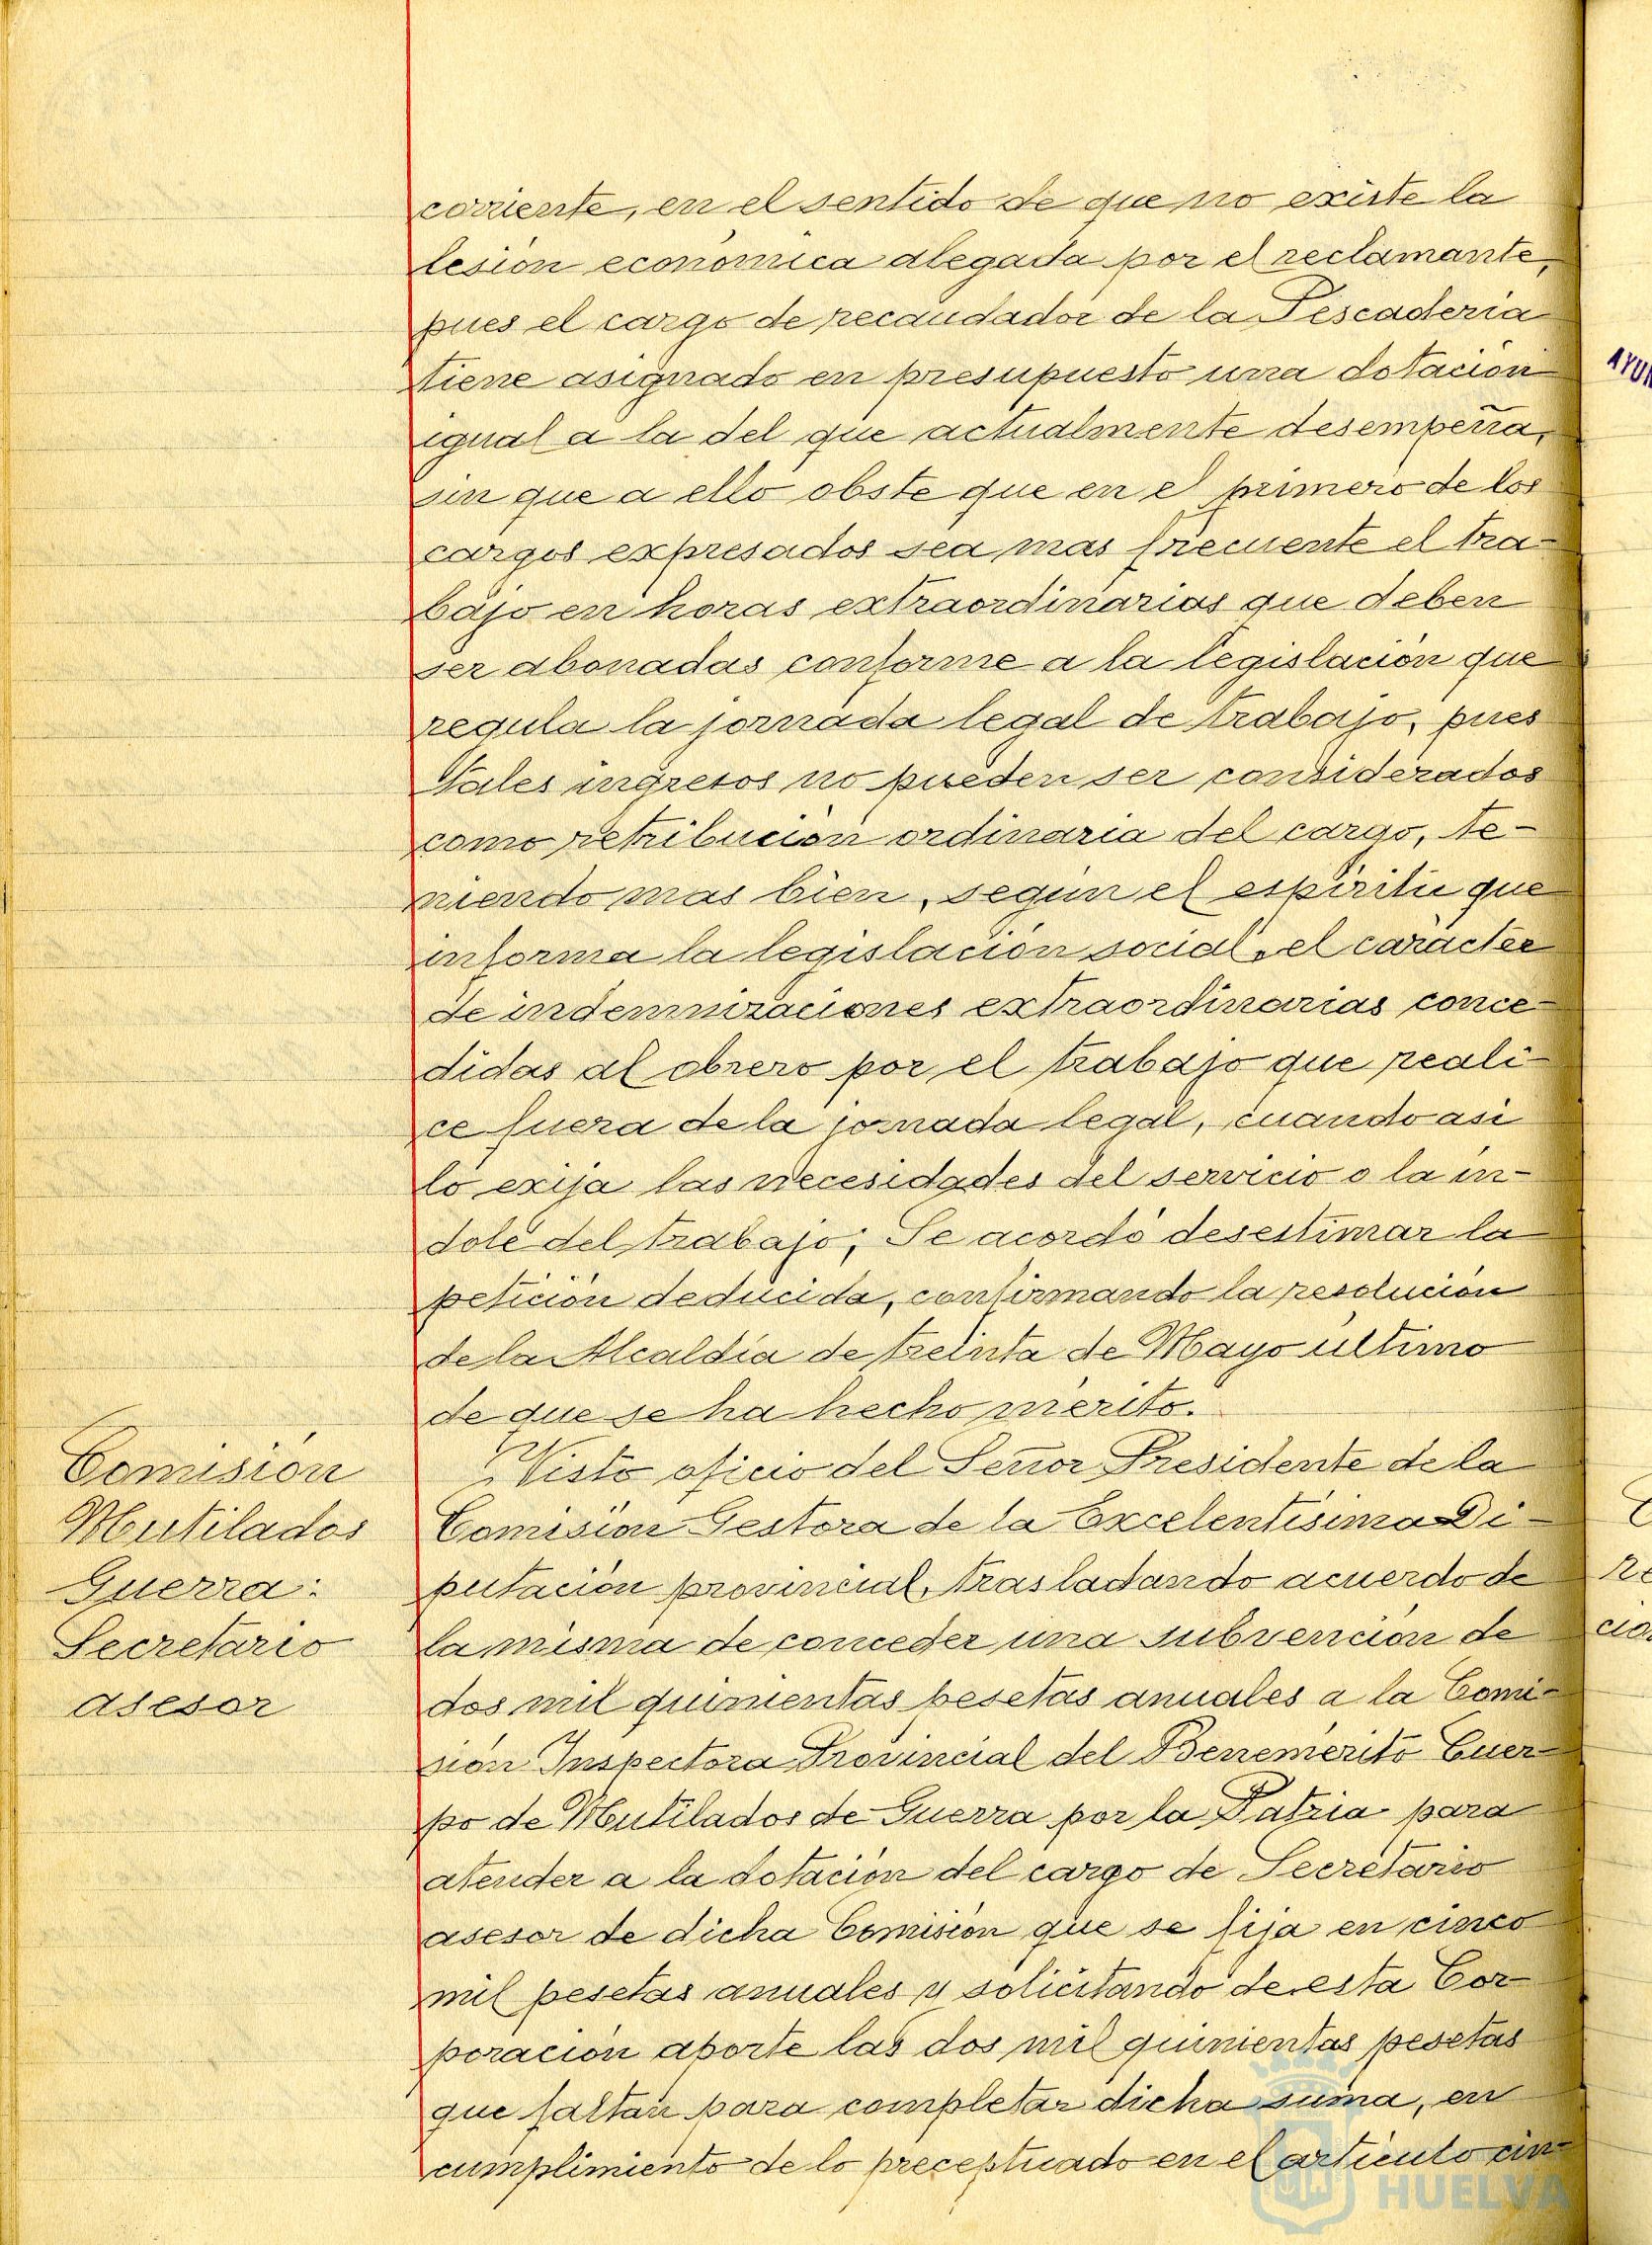 corriente, en el sentido de que no existe la
lesión económica alegada por el reclamante,
pues el cargo de recaudador de la Pescadería
tiene asignado en presupuesto una dotación
igual a la del que actualmente desempeña,
sin que a ello obste que en el primero de los
cargos expresados sea mas frecuente el tra-
bajo en horas extraordinarias que deben
ser abonadas conforme a la legislación que
regula la jornada legal de trabajo, pues
tales ingresos no pueden ser considerados
como retribución ordinaria del cargo, te-
niendo mas bien, según el espiritu que
informa la legislación social, el caracter
de indemnizaciones extraordinarias conce-
didas al obrero por el trabajo que reali-
ce fuera de la jornada legal, cuando asi
lo exija las necesidades del servicio o la in-
dole del trabajo; Se acordó desestimar la
petición deducida, confirmando la resolución
de la Alcaldía de treinta de Mayo ultimo
de que se ha hecho mérito.
Comisión
Mutilados
Guerra:
Secretario
asesor
Visto oficio del Señor Presidente de la
Comisión Gestora de la Excelentísima Di-
putación provincial, trasladando acuerdo de
la misma de conceder una subvención de
dos mil quinientas pesetas anuales a la Comi-
sión Inspectora Provincial del Benemérito Cuer-
po de Mutilados de Guerra por la Patria para
atender a la dotación del cargo de Secretario
asesor de dicha Comisión que se fija en cinco
mil pesetas anuales y solicitando de esta Cor-
poración aporte las dos mil quinientas pesetas
que faltan para completar dicha suma, en
cumplimiento de lo preceptuado en el articulo cin-
HUELVA
AYUN